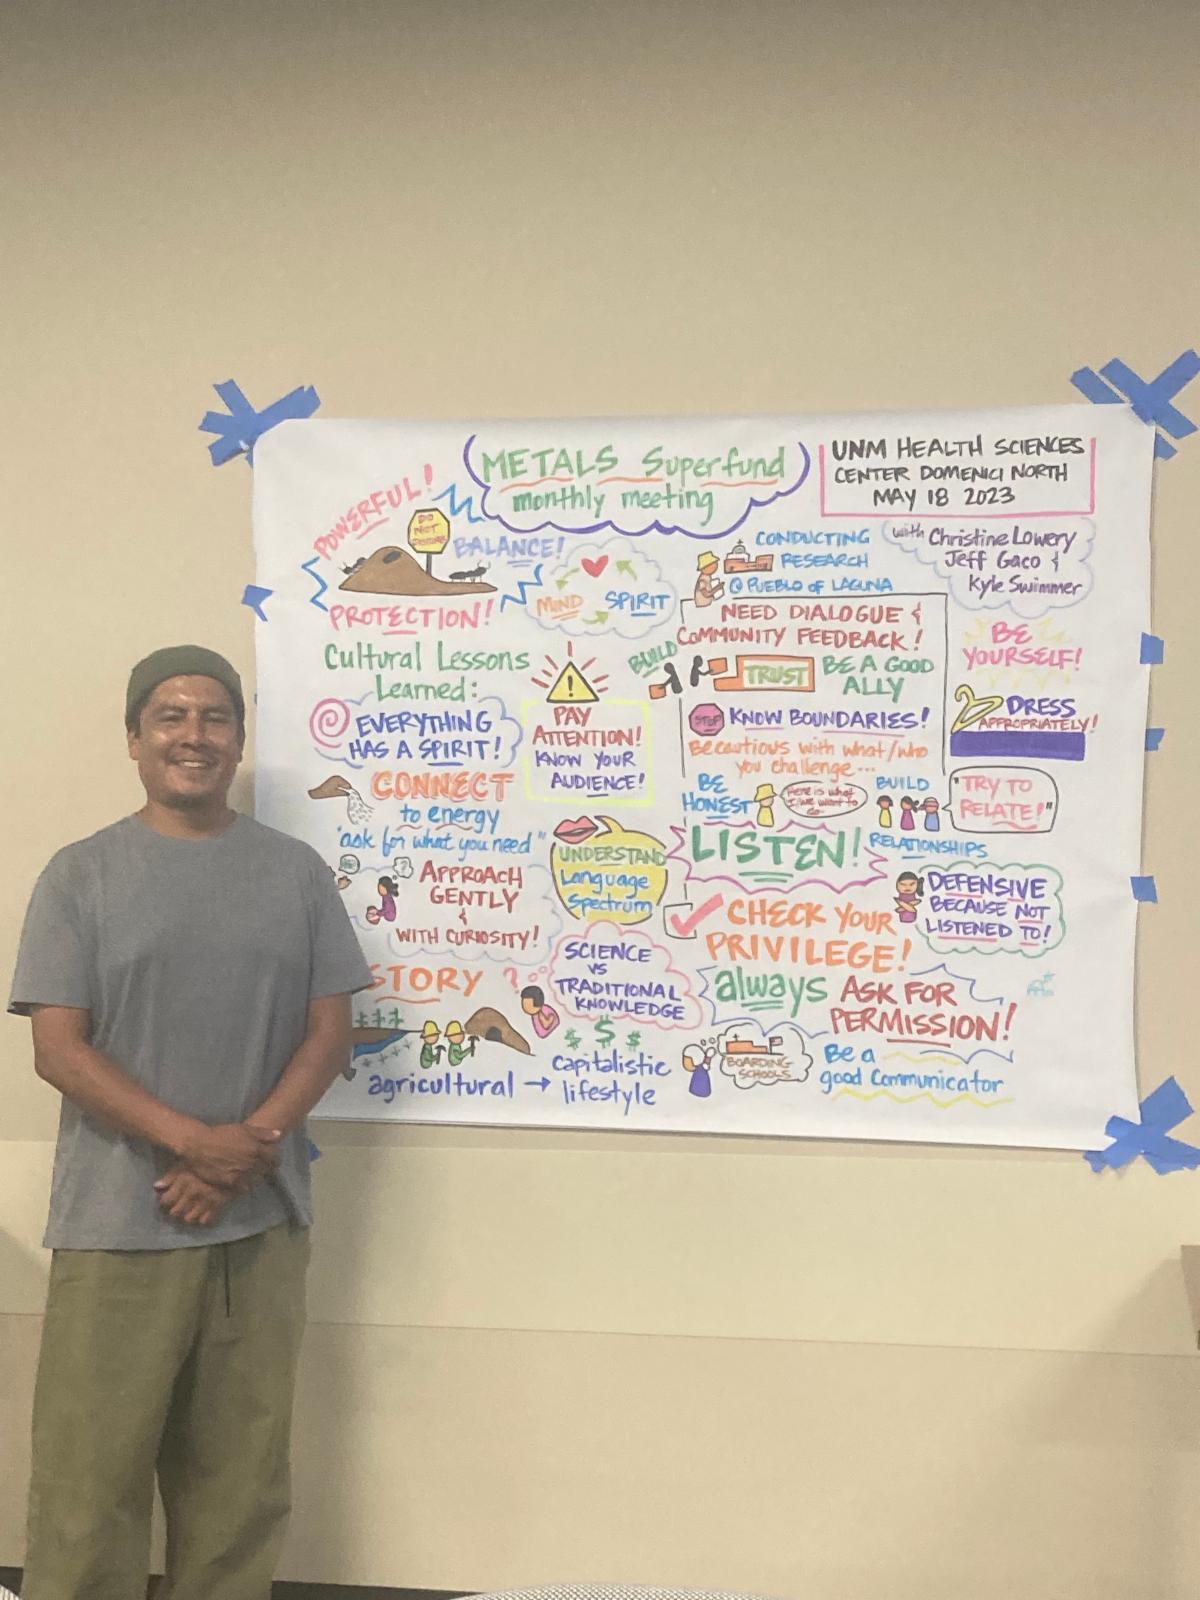 METALS Superfund
monthly meeting
UNM HEALTH SCIENCES
CENTER DOMENICI NORTH
MAY 18 2023
with Christine Lowery
Jeff Gaco &
Kyle Swimmer
POWERFUL!
DO
NOT
BALANCE!
PROTECTION!
MIND
SPIRIT
Cultural Lessons
Learned:
EVERYTHING
HAS A SPIRIT!
PAY
ATTENTION!
KNOW YOUR
AUDIENCE!
CONNECT
to energy
"ask for what you need"
APPROACH
GENTLY
&
WITH CURIOSITY!
?
UNDERSTAND
Language
Spectrum
STORY
?
SCIENCE
VS
TRADITIONAL
KNOWLEDGE
$ $ $
agricultural → capitalistic
lifestyle
CONDUCTING
RESEARCH
@ PUEBLO of LAGUNA
NEED DIALOGUE &
COMMUNITY FEEDBACK!
BUILD
TRUST
BE A GOOD
ALLY
STOP
KNOW BOUNDARIES!
Be cautious with what/who
you challenge...
BE
HONEST
Here is what
we want to
BUILD
RELATIONSHIPS
LISTEN!
CHECK YOUR
PRIVILEGE!
always ASK FOR
PERMISSION!
BOARDING
SCHOOLS
Be a
good Communicator
BE
YOURSELF!
DRESS
APPROPRIATELY!
"TRY TO
RELATE!"
DEFENSIVE
BECAUSE NOT
LISTENED TO!